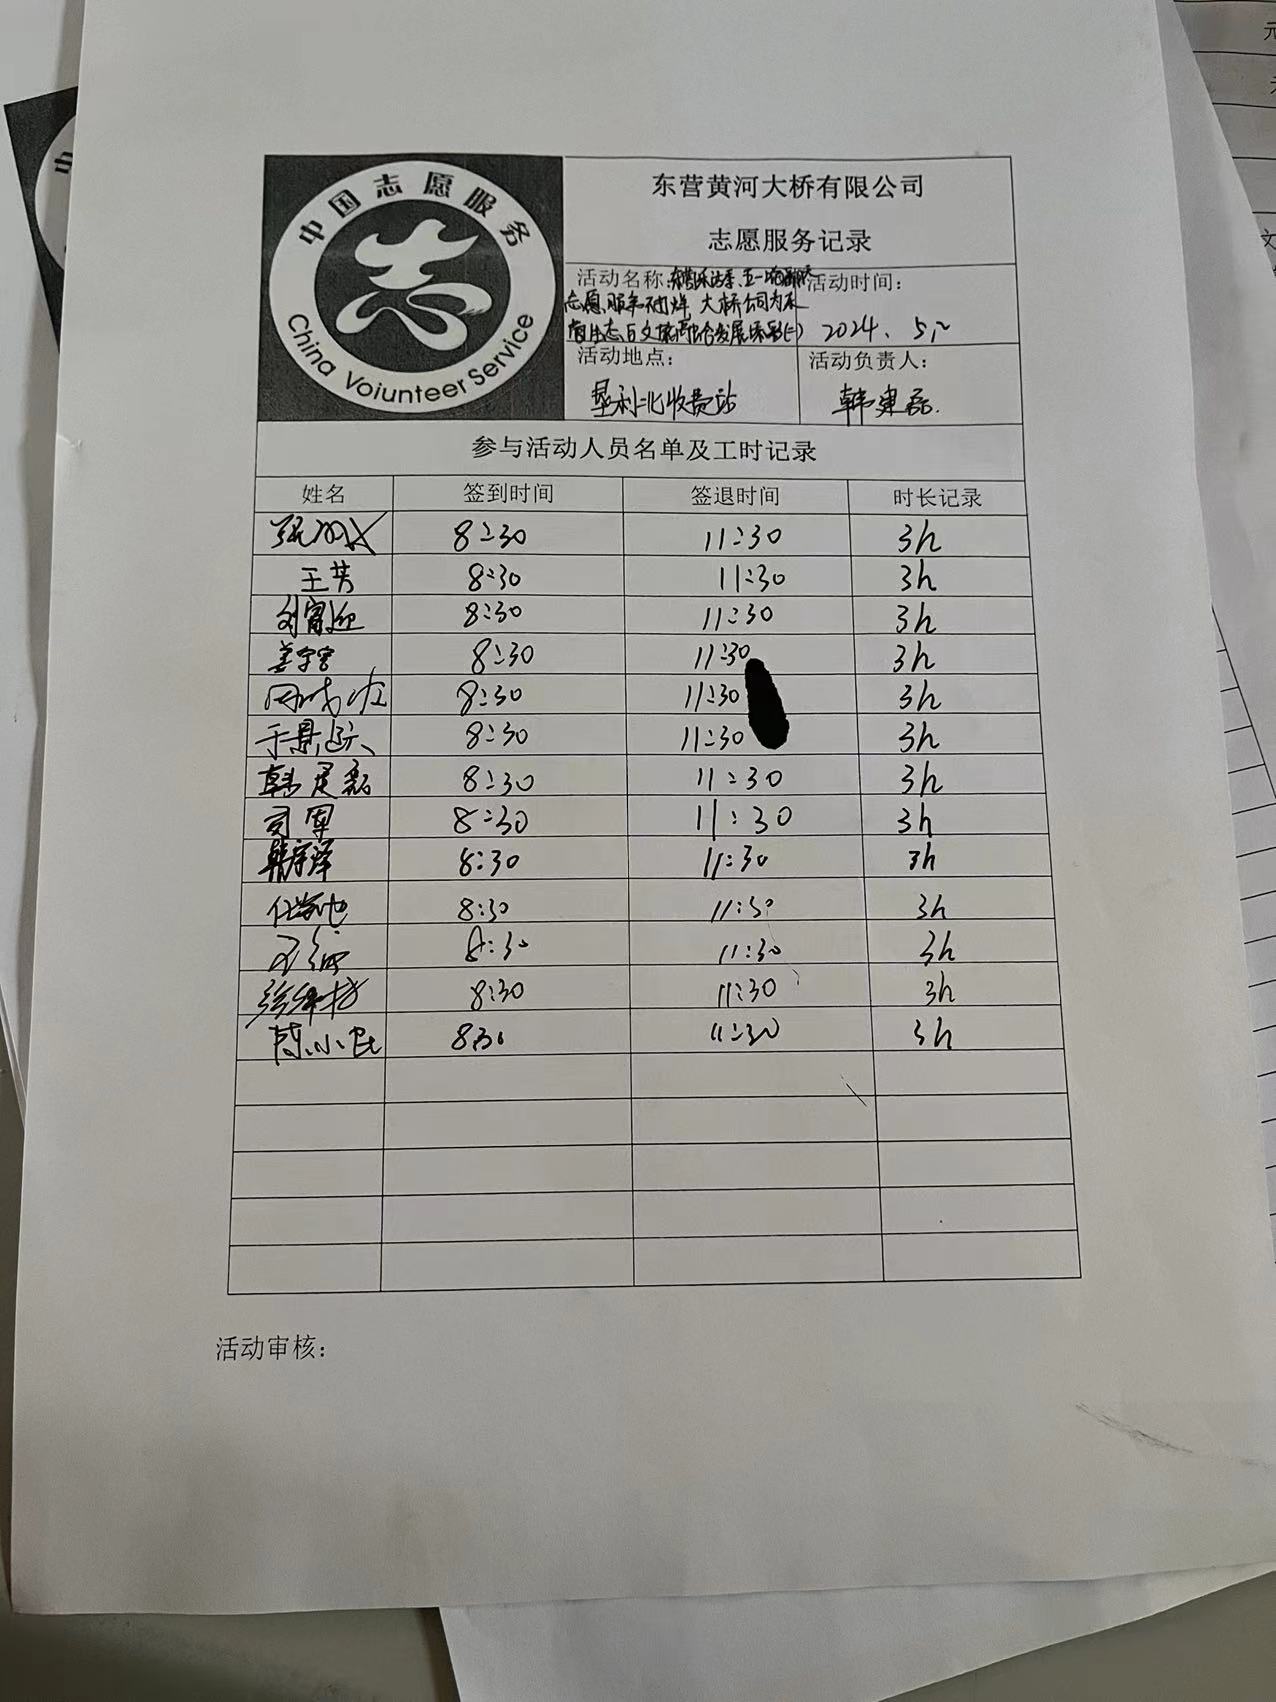 中国志愿服务
China Voiunteer Service
东营黄河大桥有限公司
志愿服务记录
活动名称:
志愿服务 大桥公司为东
营生态 文旅融合发展添彩(二)
活动时间:
2024、5、2
活动地点:
垦利北收费站
活动负责人:
韩建磊.
参与活动人员名单及工时记录
姓名 签到时间 签退时间 时长记录
8:30 11:30 3h
王芳 8:30 11:30 3h
刘 8:30 11:30 3h
姜 8:30 11:30 3h
8:30 11:30 3h
于 8:30 11:30 3h
韩建磊 8:30 11:30 3h
司军 8:30 11:30 3h
韩宇泽 8:30 11:30 3h
8:30 11:30 3h
8:30 11:30 3h
8:30 11:30 3h
陈小民 8:30 11:30 3h
活动审核: